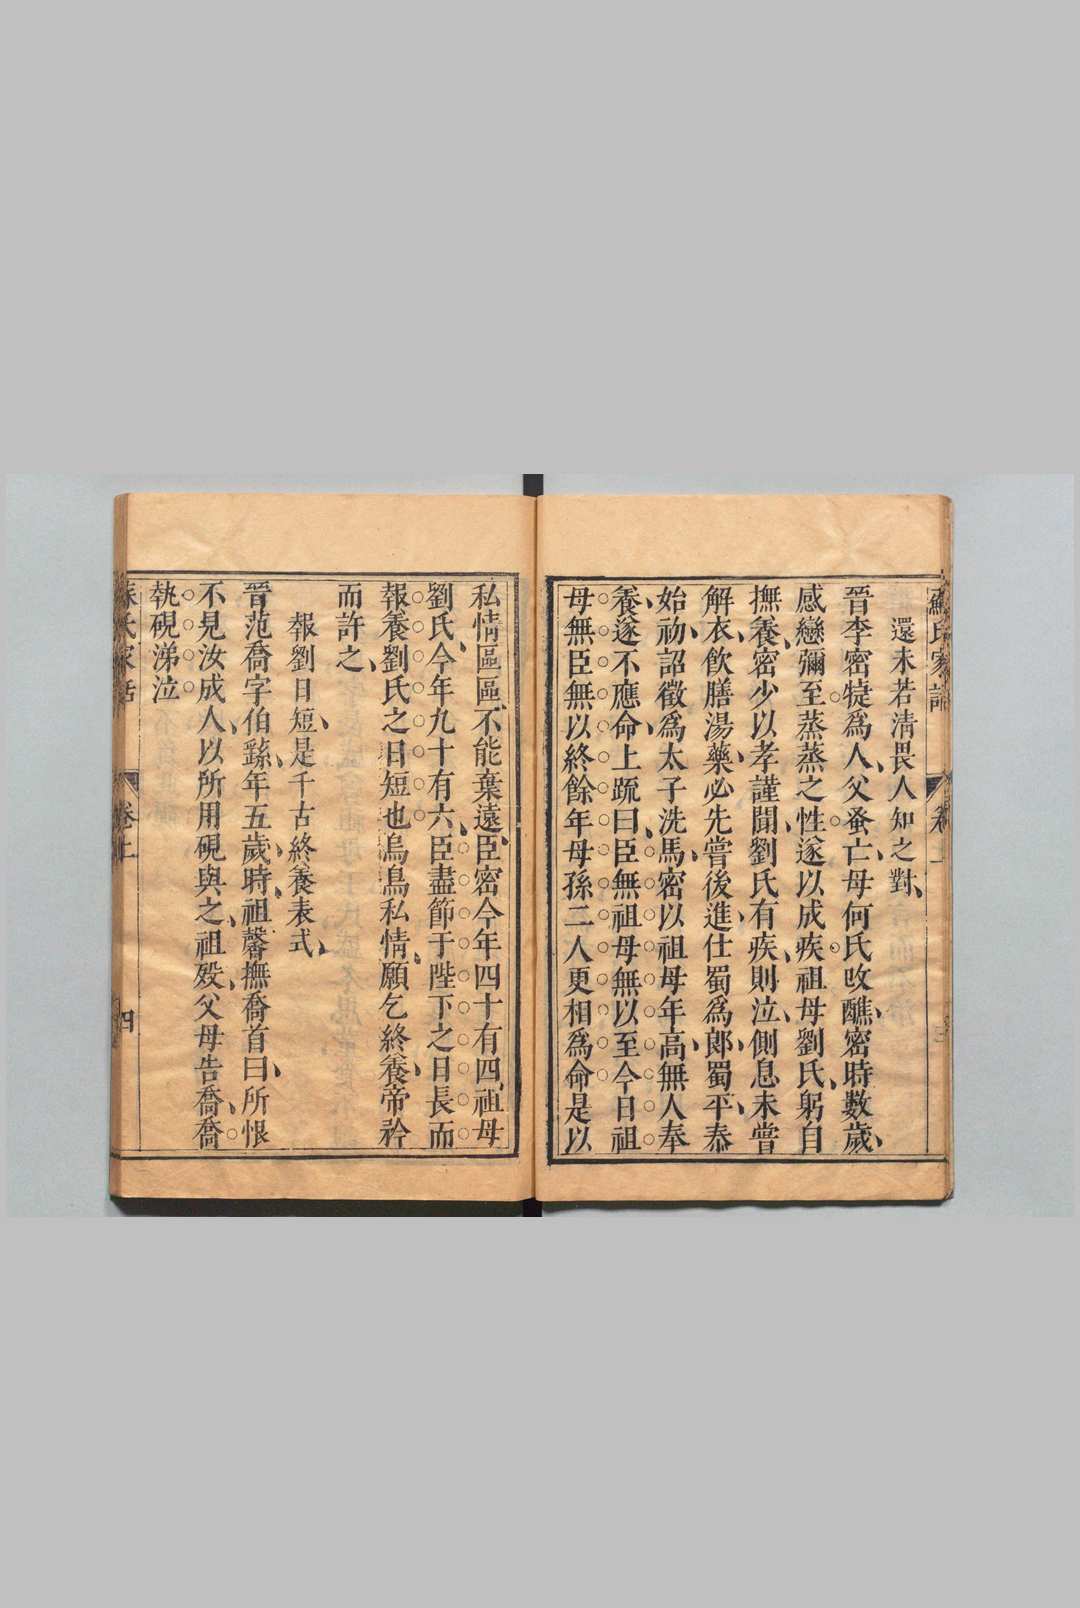 還未若淸畏人知之對
晉李密㹁爲人父蚤亡母何氏改醮密時數歲
感戀彌至蒸蒸之性遂以成疾祖母劉氏躬自
撫養密少以孝謹聞劉氏有疾則泣側息未嘗
解衣飲膳湯藥必先嘗後進仕蜀爲郞蜀平泰
始初詔徵爲太子洗馬密以祖母年高無人奉
養遂不應命上疏曰臣無祖母無以至今日祖
母無臣無以終餘年母孫二人更相爲命是以
私情區區不能棄遠臣密今年四十有四祖母
劉氏今年九十有六臣盡節于陛下之日長而
報養劉氏之日短也烏鳥私情願乞終養帝矜
而許之
報劉日短是千古終養表式
晉范喬字伯孫年五歲時祖馨撫喬首曰所恨
不見汝成人以所用硯與之祖歿父母告喬喬
執硯涕泣
卷上
四